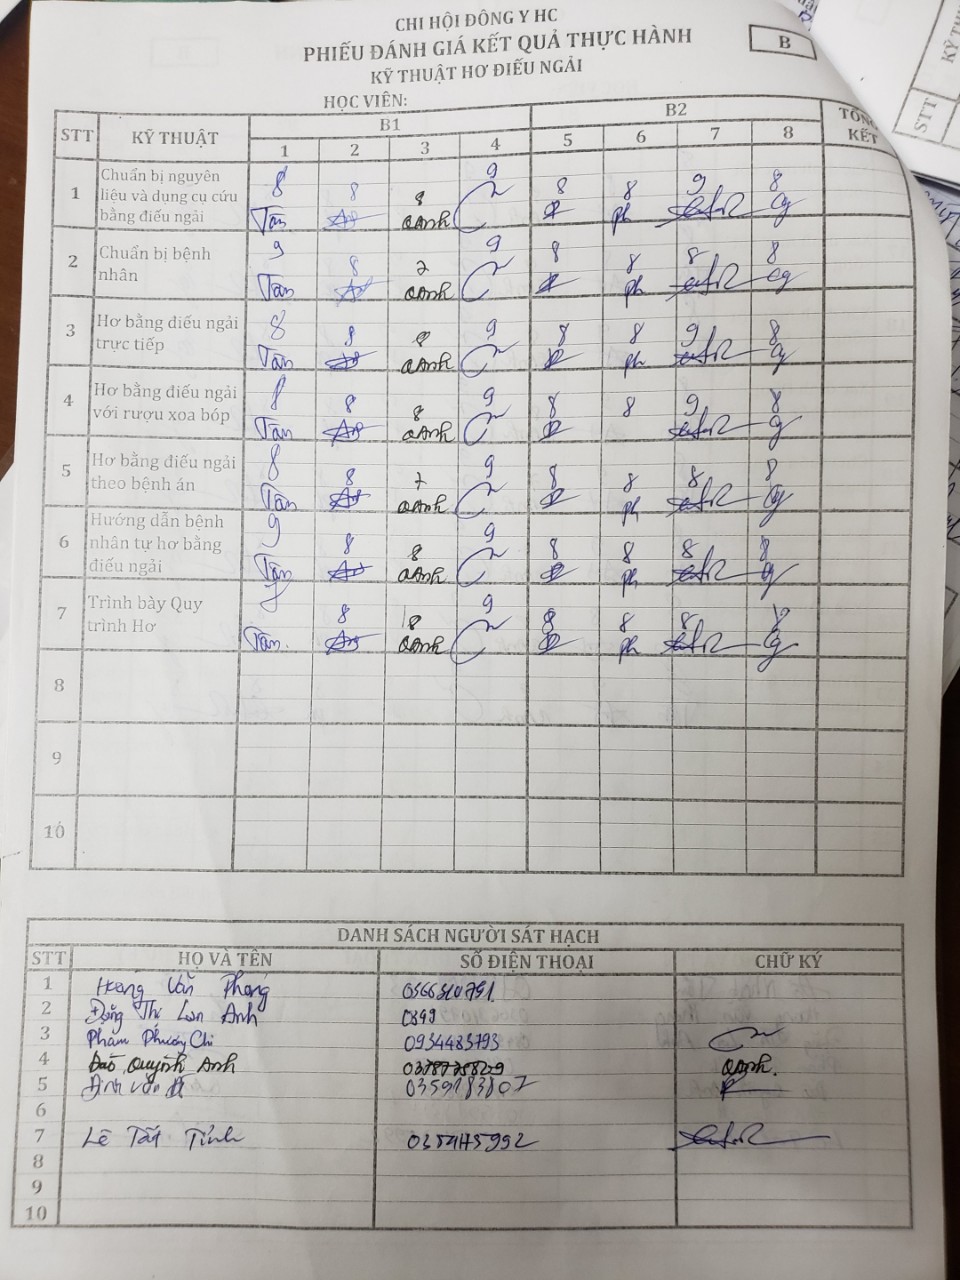 CHI HỘI ĐÔNG Y HC
PHIẾU ĐÁNH GIÁ KẾT QUẢ THỰC HÀNH
B
KỸ THUẬT HƠ ĐIẾU NGẢI
HỌC VIÊN:
STT KỸ THUẬT B1 B2 TỔNG KẾT
1 2 3 4 5 6 7 8
1 Chuẩn bị nguyên liệu và dụng cụ cứu bằng điếu ngải 8 8 8 9 8 8 9 8
Tân QAnh ph
2 Chuẩn bị bệnh nhân 9 8 7 9 8 8 8 8
Tân QAnh ph
3 Hơ bằng điếu ngải trực tiếp 8 8 9 8 8 9 8
Tân QAnh ph
4 Hơ bằng điếu ngải với rượu xoa bóp 8 8 8 9 8 8 9 8
Tân QAnh
5 Hơ bằng điếu ngải theo bệnh án 8 8 7 9 8 8 8 8
Tân QAnh ph
6 Hướng dẫn bệnh nhân tự hơ bằng điếu ngải 9 8 8 9 8 8 8 8
Tân QAnh ph
7 Trình bày Quy trình Hơ 8 8 9 8 8 8
Tân. QAnh ph
8
9
10
DANH SÁCH NGƯỜI SÁT HẠCH
STT HỌ VÀ TÊN SỐ ĐIỆN THOẠI CHỮ KÝ
1 Hoàng Văn Phong
2 Đặng Thị Lan Anh 0899
3 Phạm Phương Chi 0934483793
4 Đào Quỳnh Anh QAnh.
5 Đinh Văn 0359183807
6
7 Lê Tất Tính
8
9
10